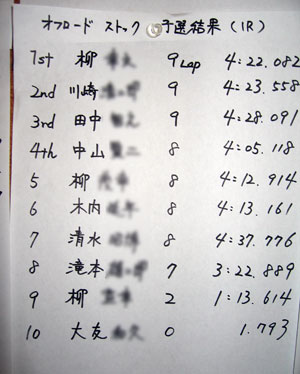 オフロード ストック 予選結果 (1R)
1st 柳 9 Lap 4:22.082
2nd 川崎 9 4:23.558
3rd 田中 9 4:28.091
4th 中山 8 4:05.118
5 柳 8 4:12.914
6 木内 8 4:13.161
7 清水 8 4:37.776
8 滝本 7 3:22.889
9 柳 2 1:13.614
10 大友 0 1.793